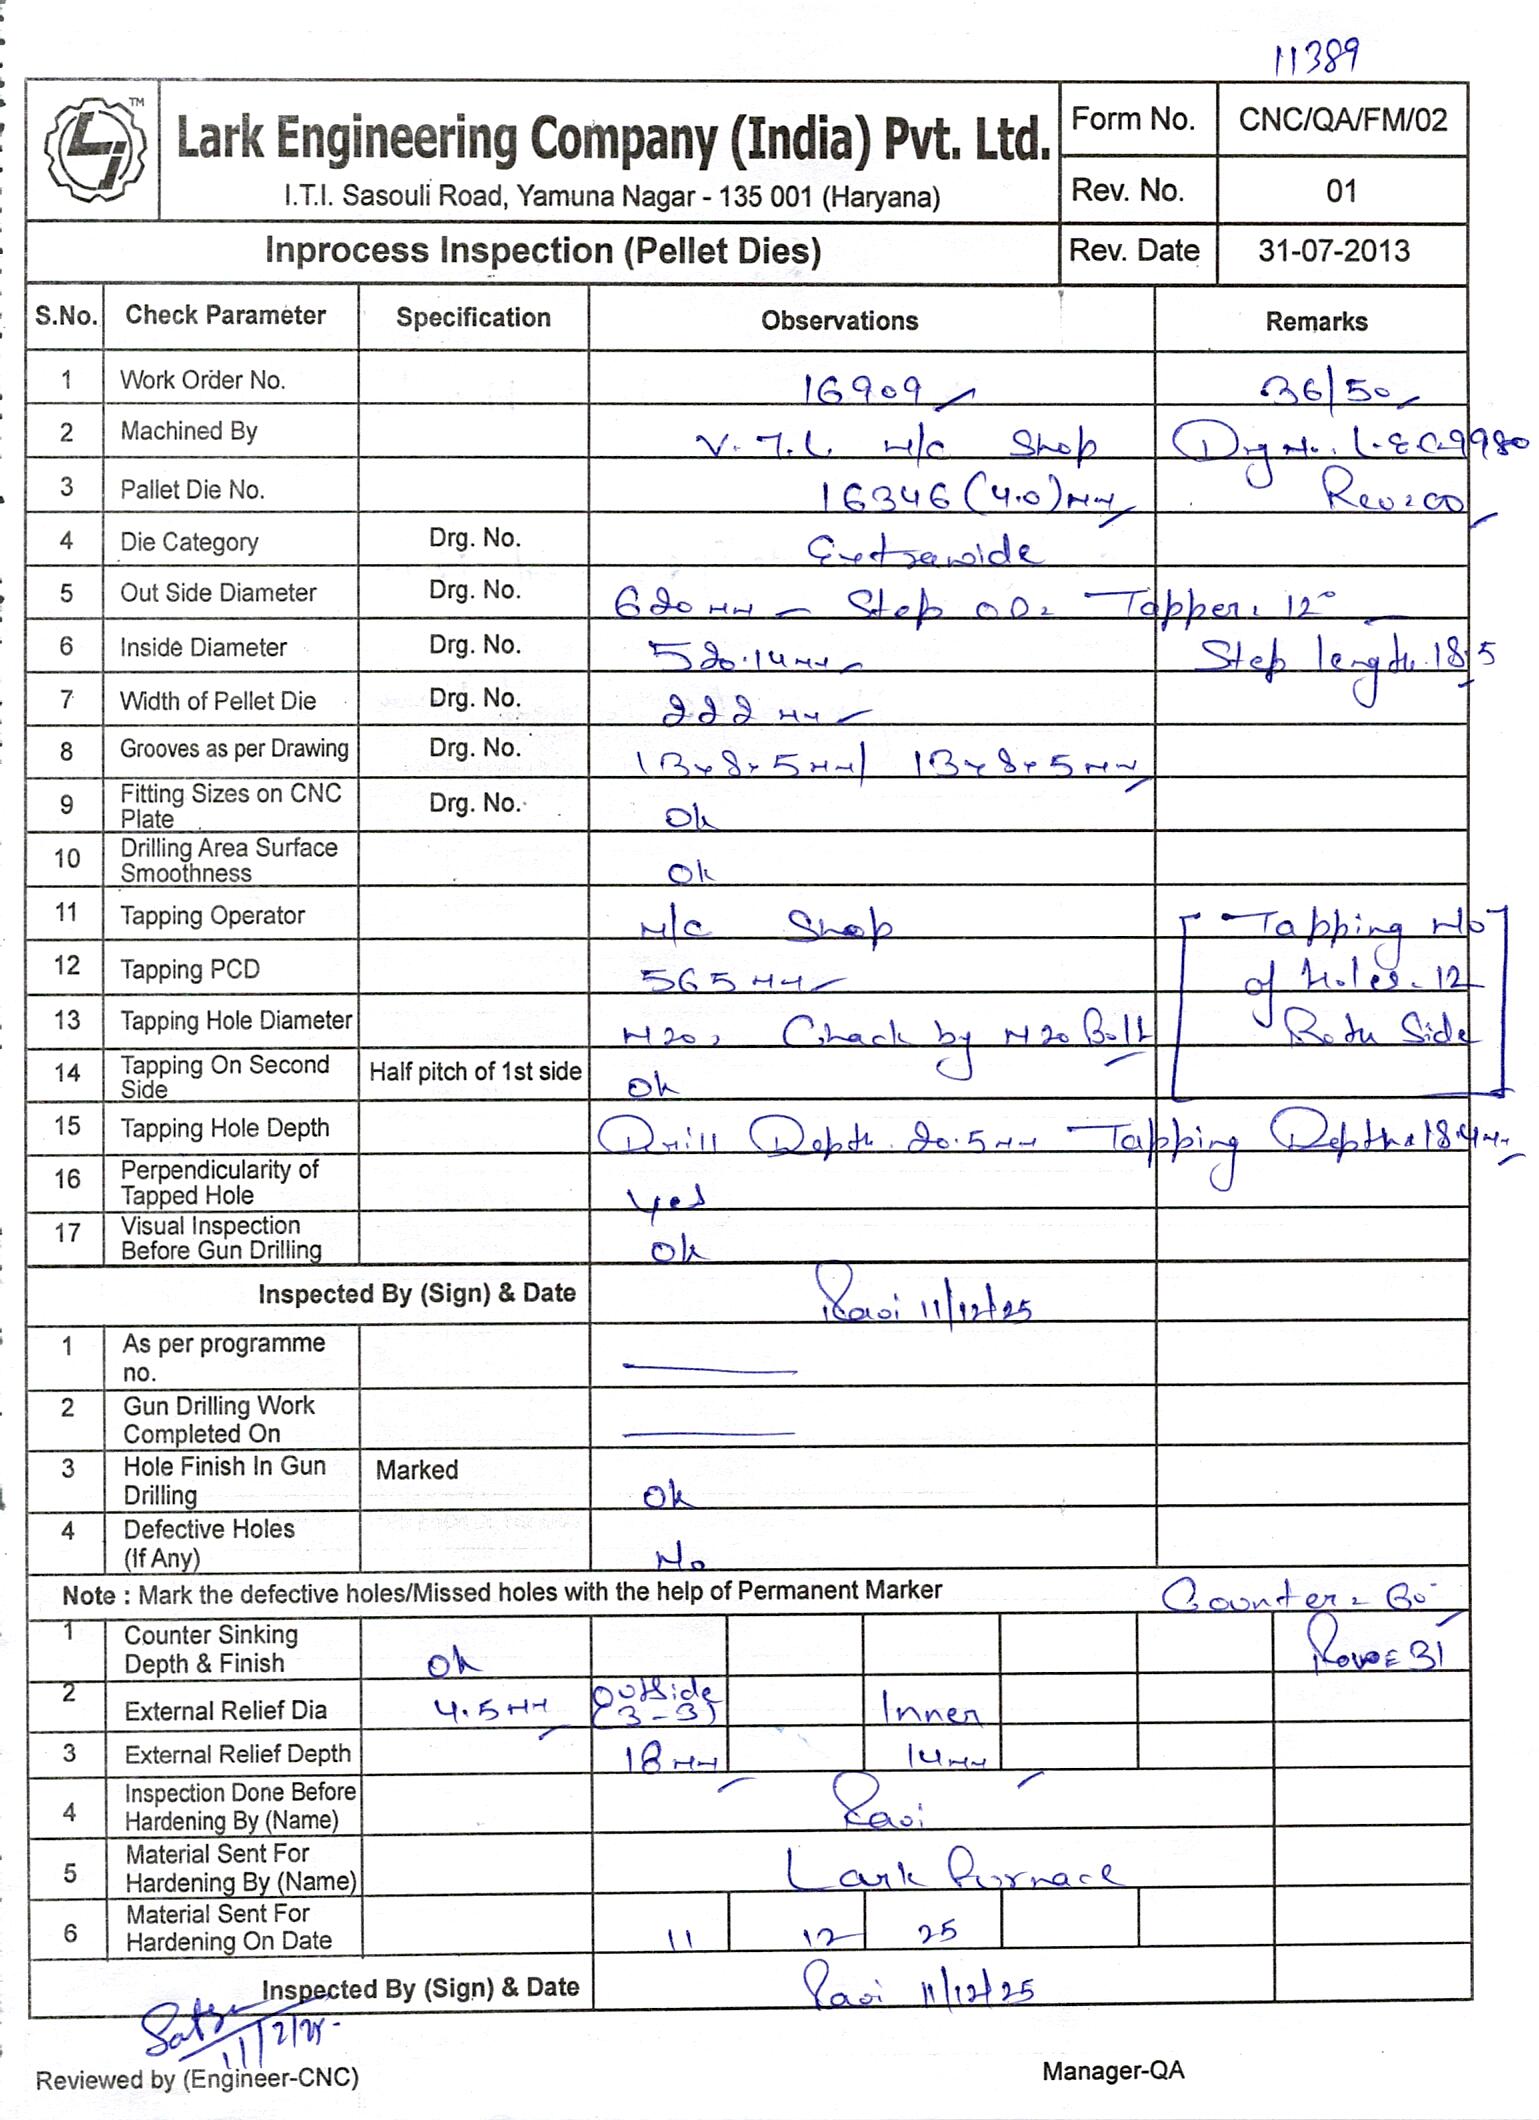 11389
TM
Lark Engineering Company (India) Pvt. Ltd.
I.T.I. Sasouli Road, Yamuna Nagar - 135 001 (Haryana)
Form No. CNC/QA/FM/02
Rev. No. 01
Inprocess Inspection (Pellet Dies) Rev. Date 31-07-2013
S.No. Check Parameter Specification Observations Remarks
1 Work Order No. 16909 36/50
2 Machined By V.T.L M/C Shop Drg No. L.E.C-9980
3 Pallet Die No. 16346 (4.0) mm Rev=00
4 Die Category Drg. No. Extrawide
5 Out Side Diameter Drg. No. 620 mm - Step OD= Tapper= 12°
6 Inside Diameter Drg. No. 520.14 mm Step length.18.5
7 Width of Pellet Die Drg. No. 222 mm
8 Grooves as per Drawing Drg. No. 13x8x5mm/ 13x8x5mm
9 Fitting Sizes on CNC Plate Drg. No. Ok
10 Drilling Area Surface Smoothness Ok
11 Tapping Operator M/C Shop [Tapping No
12 Tapping PCD 565 mm of Holes-12
13 Tapping Hole Diameter M20, Chack by M20 Bolt Both Side]
14 Tapping On Second Side Half pitch of 1st side Ok
15 Tapping Hole Depth Drill Depth.20.5mm Tapping Depth=18.4mm
16 Perpendicularity of Tapped Hole Yes
17 Visual Inspection Before Gun Drilling Ok
Inspected By (Sign) & Date Ravi 11/12/25
1 As per programme no. —
2 Gun Drilling Work Completed On —
3 Hole Finish In Gun Drilling Marked Ok
4 Defective Holes (If Any) No
Note : Mark the defective holes/Missed holes with the help of Permanent Marker Counter= 60°
1 Counter Sinking Depth & Finish Ok
2 External Relief Dia 4.5mm Outside (3-3) Inner
3 External Relief Depth 18mm 14mm
4 Inspection Done Before Hardening By (Name) Ravi
5 Material Sent For Hardening By (Name) Lark Furnace
6 Material Sent For Hardening On Date 11 12 25
Inspected By (Sign) & Date Ravi 11/12/25
Reviewed by (Engineer-CNC) Manager-QA